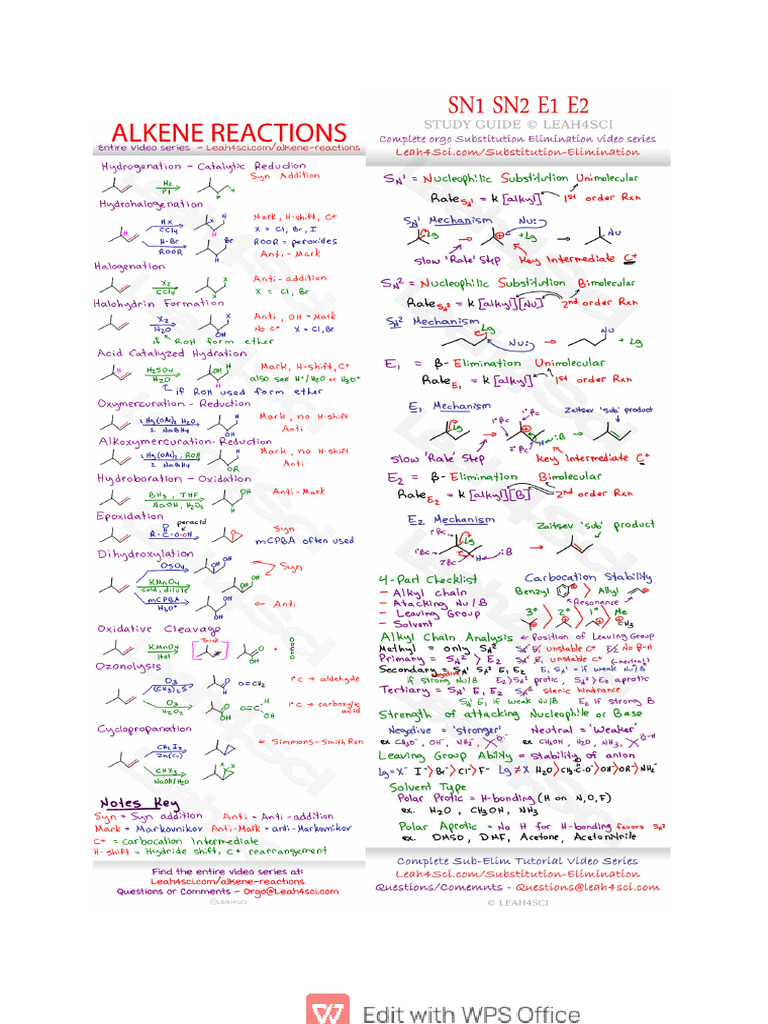 ALKENE REACTIONS
Entire video series - Leah4sci.com/alkene-reactions
Hydrogenation - Catalytic Reduction
H₂
Pt
Syn Addition
Hydrohalogenation
HX
CCl₄
H-Br
ROOR
Mark, H-shift, C+
X = Cl, Br, I
ROOR = peroxides
Anti-Mark
Halogenation
X₂
CCl₄
Anti-addition
X = Cl, Br
Halohydrin Formation
X₂
H₂O
Anti, OH = Mark
No C+ X = Cl, Br
if ROH form ether
Acid Catalyzed Hydration
H₂SO₄
H₂O
Mark, H-shift, C+
also see H+/H₂O or H₃O+
if ROH used form ether
Oxymercuration - Reduction
1 Hg(OAc)₂ H₂O
2 NaBH₄
Mark, no H-shift
Anti
Alkoxymercuration-Reduction
1 Hg(OAc)₂, ROH
2 NaBH₄
Mark, no H-shift
Anti
Hydroboration - Oxidation
BH₃, THF
NaOH, H₂O₂
Anti-Mark
Epoxidation
peracid
R-C-O-OH
Syn
mCPBA often used
Dihydroxylation
OsO₄
KMnO₄
cold, dilute
mCPBA
H₃O+
Syn
Anti
Oxidative Cleavage
KMnO₄
Hot
Think
Ozonolysis
O₃
(CH₃)₂S
O=CH₂
1°C → aldehyde
O₃
H₂O₂
1°C → carboxylic
acid
Cyclopropanation
CH₂I₂
Zn(Cu)
Simmons-Smith Rxn
CHX₃
NaOH/H₂O
Notes Key
Syn = Syn addition Anti = Anti-addition
Mark = Markovnikov Anti-Mark = anti-Markovnikov
C+ = carbocation Intermediate
H-shift = Hydride shift, C+ rearrangement
Find the entire video series at:
Leah4sci.com/alkene-reactions
Questions or Comments - Orgo@Leah4sci.com
©LEAH4SCI
SN1 SN2 E1 E2
STUDY GUIDE © LEAH4SCI
Complete orgo Substitution Elimination video series
Leah4Sci.com/Substitution-Elimination
SN1 = Nucleophilic Substitution Unimolecular
Rate SN1 = k [alkyl] 1st order Rxn
SN1 Mechanism
Lg
Nu:
+Lg
Nu
slow 'Rate' Step
Key Intermediate C+
SN2 = Nucleophilic Substitution Bimolecular
Rate SN2 = k [alkyl][Nu] 2nd order Rxn
SN2 Mechanism
Lg
Nu:
Nu
+ Lg
E1 = β-Elimination Unimolecular
Rate E1 = k [alkyl] 1st order Rxn
E1 Mechanism
Zaitsev 'sub' product
Lg
1°βc
1°βc
2°βc
H
:B
slow 'Rate' Step
Key Intermediate C+
E2 = β-Elimination Bimolecular
Rate E2 = k [alkyl][B] 2nd order Rxn
E2 Mechanism
Zaitsev 'sub' product
1°βc
Lg
1°βc
2°βc
H
:B
4-Part Checklist
- Alkyl chain
- Atacking Nu/B
- Leaving Group
- Solvent
Carbocation Stability
Benzyl
Allyl
Resonance
3° > 2° > 1° > Me
CH₃
Alkyl Chain Analysis ← Position of Leaving Group
Methyl = only SN2 SN1 E1 unstable C+ E2 No β-H
Primary = SN2 > E2 SN1 E1 unstable C+
Secondary = SN2 SN1 E1, E2 E1, SN1 = if weak Nu/B
if strong Nu/B E2>SN2 protic, SN2>E2 aprotic
Tertiary = SN1 E1, E2 SN2 steric hindrance
SN1 E1 if weak Nu/B E2 if strong B
Strength of attacking Nucleophile or Base
Negative = 'stronger' Neutral = 'Weaker'
ex CH₃O⁻, OH⁻, NH₂⁻, ex CH₃OH, H₂O, NH₃,
Leaving Group Ability = stability of anion
Lg = X⁻ I⁻>Br⁻>Cl⁻>F⁻ Lg ≠ X H₂O>CH₃-C-O⁻>OH⁻>OR⁻>NH₂⁻
Solvent Type
Polar Protic = H-bonding (H on N,O,F)
ex. H₂O, CH₃OH, NH₃
Polar Aprotic = No H for H-bonding favors SN2
ex. DMSO, DMF, Acetone, Acetonitrile
Complete Sub-Elim Tutorial Video Series
Leah4Sci.com/Substitution-Elimination
Questions/Comemnts - Questions@leah4sci.com
© LEAH4SCI
Edit with WPS Office